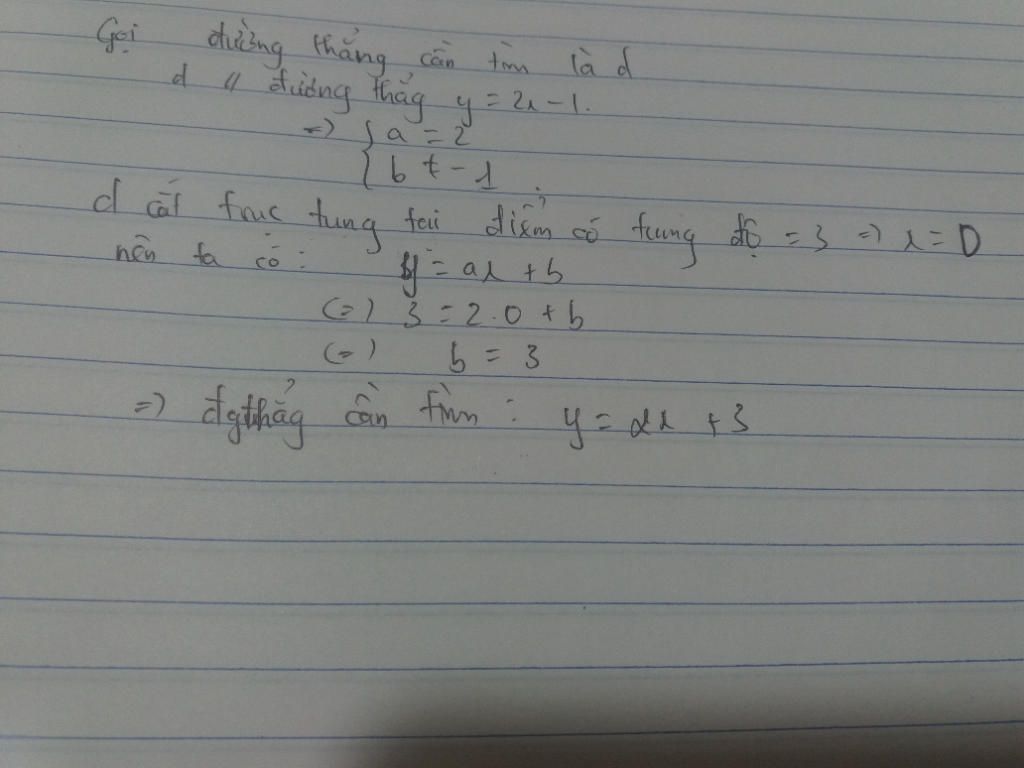 Gọi đường thẳng cần tìm là d
d // đường thẳg y = 2x - 1.
=> { a = 2
{ b ≠ - 1.
d cắt trục tung tại điểm có tung độ = 3 => x = 0
nên ta có: y = ax + b
(=) 3 = 2.0 + b
(=) b = 3
=> đgthẳg cần tìm : y = 2x + 3